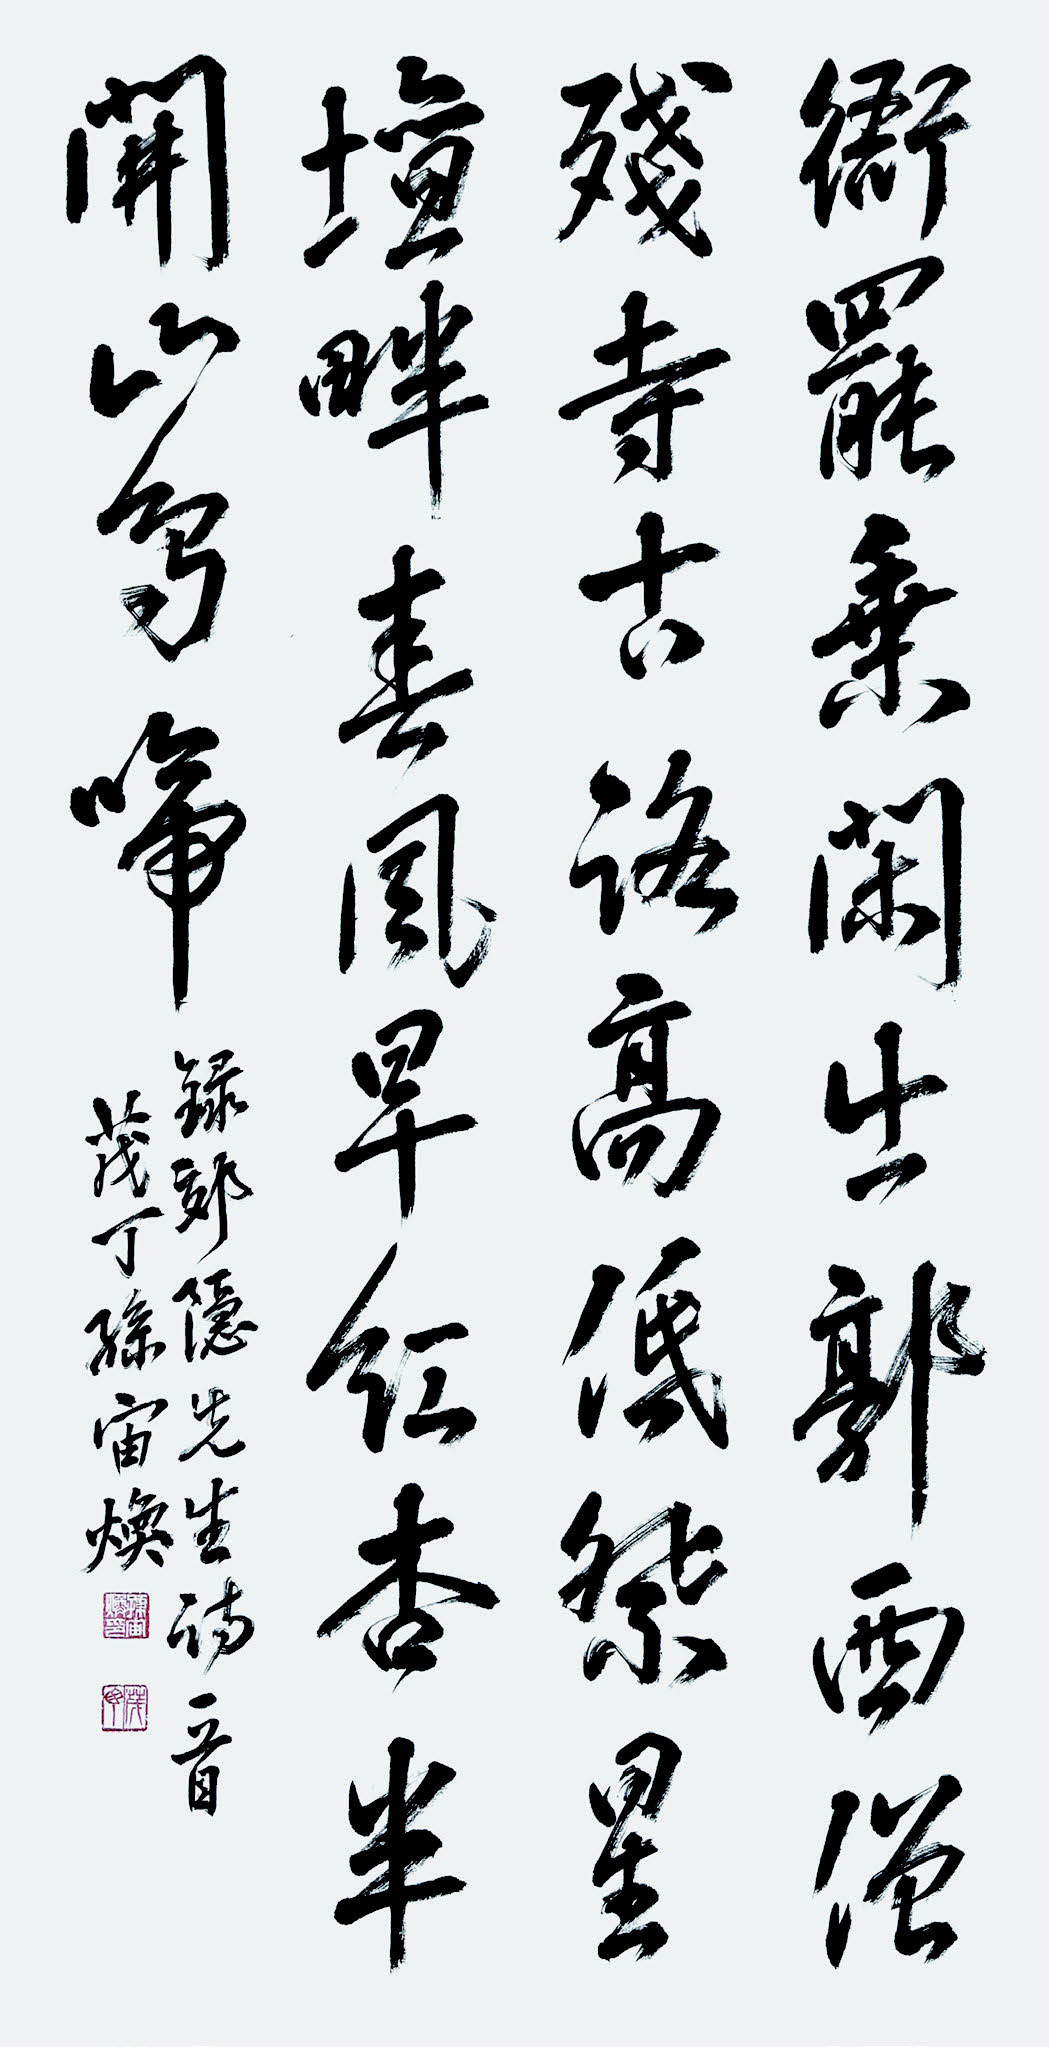 衙罷乘閑出郭西僧
殘寺古路高低祭星
壇畔春風早紅杏半
開山鳥啼
録郊隱先生詩一首
茂丁孫宙煥